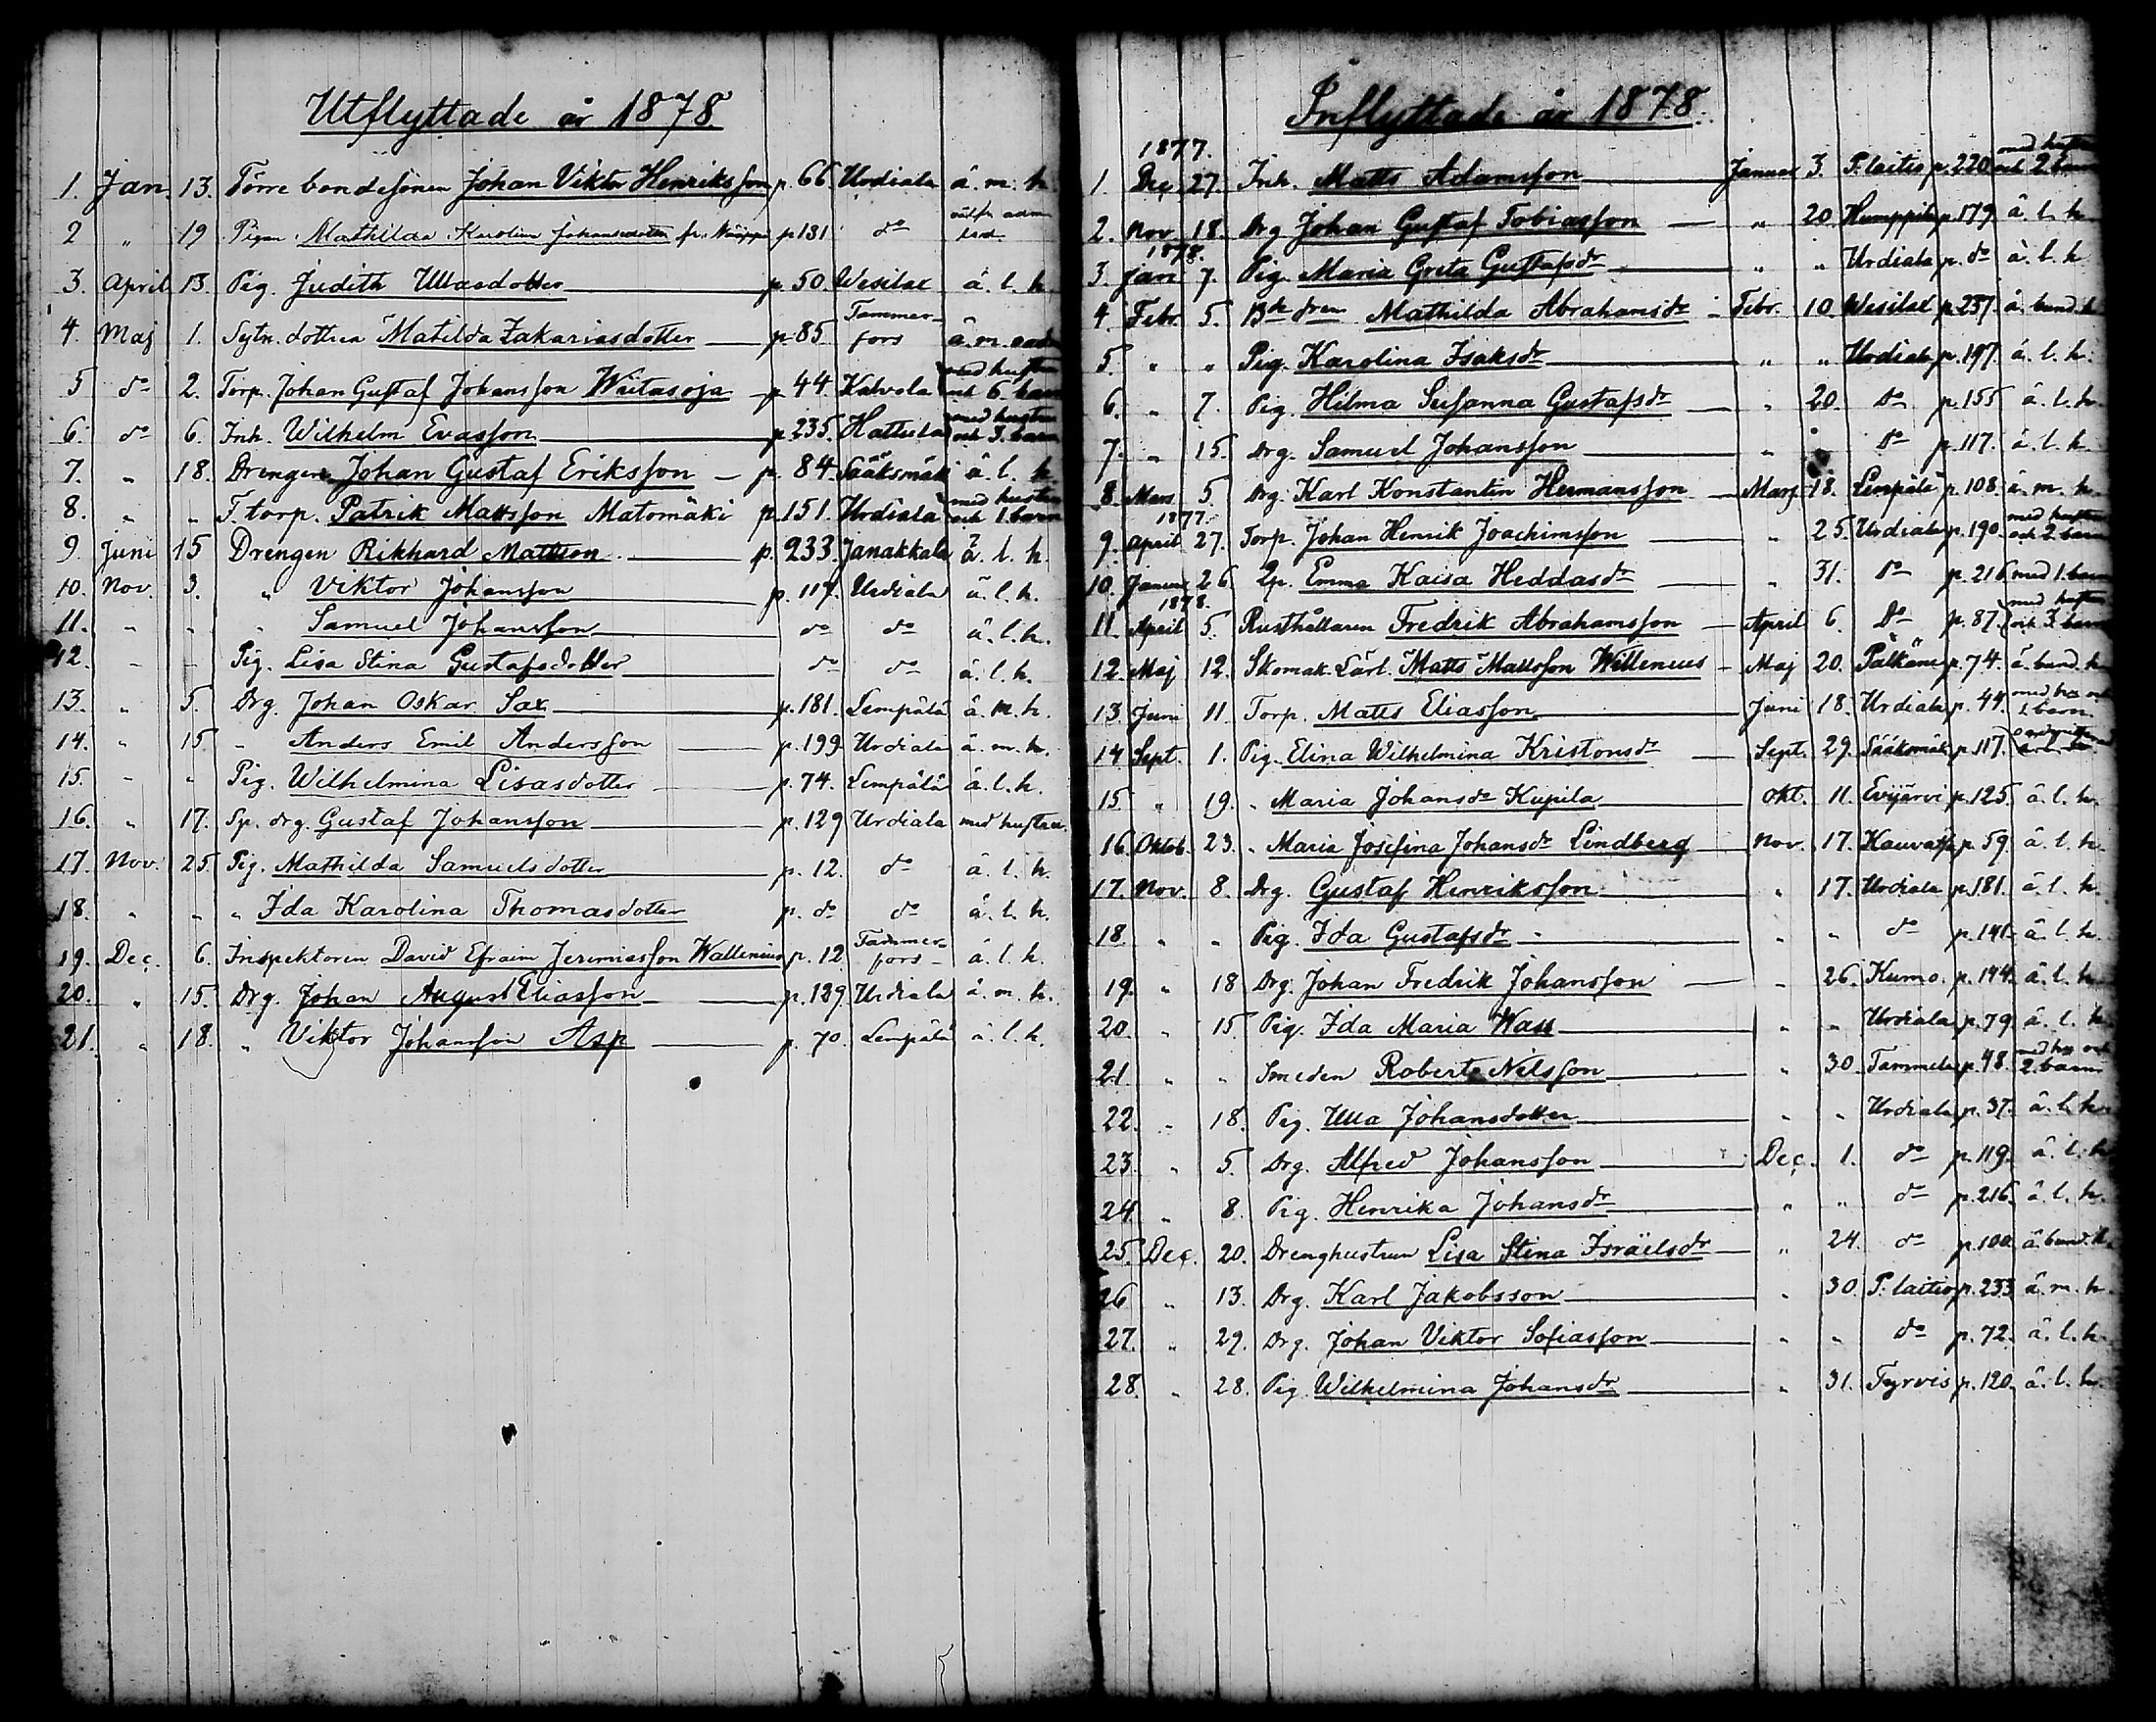 Utflyttade år 1878
1. Jan. 13. Förre bondesonen Johan Viktor Henriksson p. 66 Urdiala ä. m. h.
2 " 19 Pigan Mathilda Karolina Johansdotter fr. p 131 do
3. April 13. Pig. Judith Ullasdotter p. 50. Wesilax ä. l. h.
4. Maj 1. Sytn. dottren Matilda Zakariasdotter p. 85 Tammerfors ä. m.
5 do 2. Torp. Johan Gustaf Johansson Waitasoja p. 44. Kalvola med hustru och 6. barn
6. do 6. Inh. Wilhelm Evasson p. 235. Hattula med hustru och 3. barn
7. " 18. Drengen Johan Gustaf Eriksson p. 84 Sääksmäki ä. l. h.
8. " " F. torp. Patrik Mattsson Matomäki p. 151. Urdiala med hustru och 1. barn
9. Juni 15 Drengen Rikhard Mattson p. 233. Janakkala ä. l. h.
10. Nov. 3. " Viktor Johansson p. 117. Urdiala ä. l. h.
11. " " " Samuel Johansson do do ä. l. h.
12. " " Pig. Lisa Stina Gustafsdotter do do ä. l. h.
13. " 5. Drg. Johan Oskar Sax p. 181. Lempälä ä. m. h.
14. " 15 " Anders Emil Andersson p. 199 Urdiala ä. m. h.
15. " " Pig. Wilhelmina Lisasdotter p. 74. Lempälä ä. l. h.
16. " 17. Sp. drg. Gustaf Johansson p. 129 Urdiala med hustru.
17. Nov. 25. Pig. Mathilda Samuelsdotter p. 12. do ä. l. h.
18. " " " Ida Karolina Thomasdotter p. do do ä. l. h.
19. Dec. 6. Inspektoren David Efraim Jeremiasson Wallenius p. 12 Tammerfors ä. l. h.
20. " 15. Drg. Johan August Eliasson p. 129 Urdiala ä. m. h.
21. " 18. " Viktor Johansson Asp p. 70. Lempälä ä. l. h.
Inflyttade år 1878.
1877.
1. Dec. 27. Inh. Matts Adamsson Januar 3. P. laitio p. 220 med hustru och 2. barn
2. Nov. 18. Drg Johan Gustaf Tobiasson " 20. Humppila p. 179. ä. l. h.
1878.
3. Jan 7. Pig. Maria Greta Gustafsdr " " Urdiala p. do ä. l. h.
4. Febr. 5. Mathilda Abrahamsdr Febr. 10. Wesilax p. 237. ä. bund. h
5. " " Pig. Karolina Isaksdr " " Urdiala p. 197. ä. l. h.
6. " 7. Pig. Hilma Susanna Gustafsdr " 20. do p. 155 ä. l. h.
7. " 15. Drg. Samuel Johansson " " do p. 117. ä. l. h.
8. Mars 5. Drg. Karl Konstantin Hermansson Mars 18. Lempälä p. 108. ä. m. h.
1877.
9. April 27. Torp. Johan Henrik Joachimsson " 25. Urdiala p. 190. med hustru och 2 barn
10. Januar 26. Emma Kaisa Heddasdr " 31. do p. 216 med 1. barn
1878.
11. April 5. Rusthållaren Fredrik Abrahamsson April 6. do p. 87. med hustru och 3. barn
12. Maj 12. Skomak. Lärl. Matts Mattsson Willenius Maj 20. Pälkäne p. 74. ä. bund. h
13. Juni 11. Torp. Matts Eliasson Juni 18. Urdiala p. 44. med hu och 1. barn.
14. Sept. 1. Pig. Elina Wilhelmina Kristonsdr Sept. 29. Sääksmäki p. 117.
15. " 19. " Maria Johansdr Kupila Okt. 11. Evijärvi p. 125. ä. l. h.
16. Oktob. 23. " Maria Josefina Johansdr Lindberg Nov. 17. p. 59. ä. l. h.
17. Nov. 8. Drg. Gustaf Henriksson " 17. Urdiala p. 181. ä. l. h.
18. " " Pig. Ida Gustafsdr " " do p. 141. ä. l. h.
19. " 18 Drg. Johan Fredrik Johansson " 26. Kumo. p. 144. ä. l. h.
20. " 15. Pig. Ida Maria Wass " " Urdiala p. 79. ä. l. h.
21. " " Smeden Robert Nilsson " 30 Tammela p. 48. med hu och 2. barn
22. " 18. Pig. Ulla Johansdotter " " Urdiala p. 37. ä. l. h.
23. " 5. Drg. Alfred Johansson Dec. 1. do p. 119. ä. l. h
24. " 8. Pig. Henrika Johansdr " " do p. 216. ä. l. h.
25. Dec. 20. Drenghustrun Lisa Stina Israëlsdr " 24. do p. 100. ä. bund. h.
26 " 13. Drg. Karl Jakobsson " 30. P. laitio p. 233 ä. m. h.
27. " 29. Drg. Johan Viktor Sofiasson " " do p. 72. ä. l. h.
28. " 28. Pig. Wilhelmina Johansdr " 31. Tyrvis p. 120. ä. l. h.